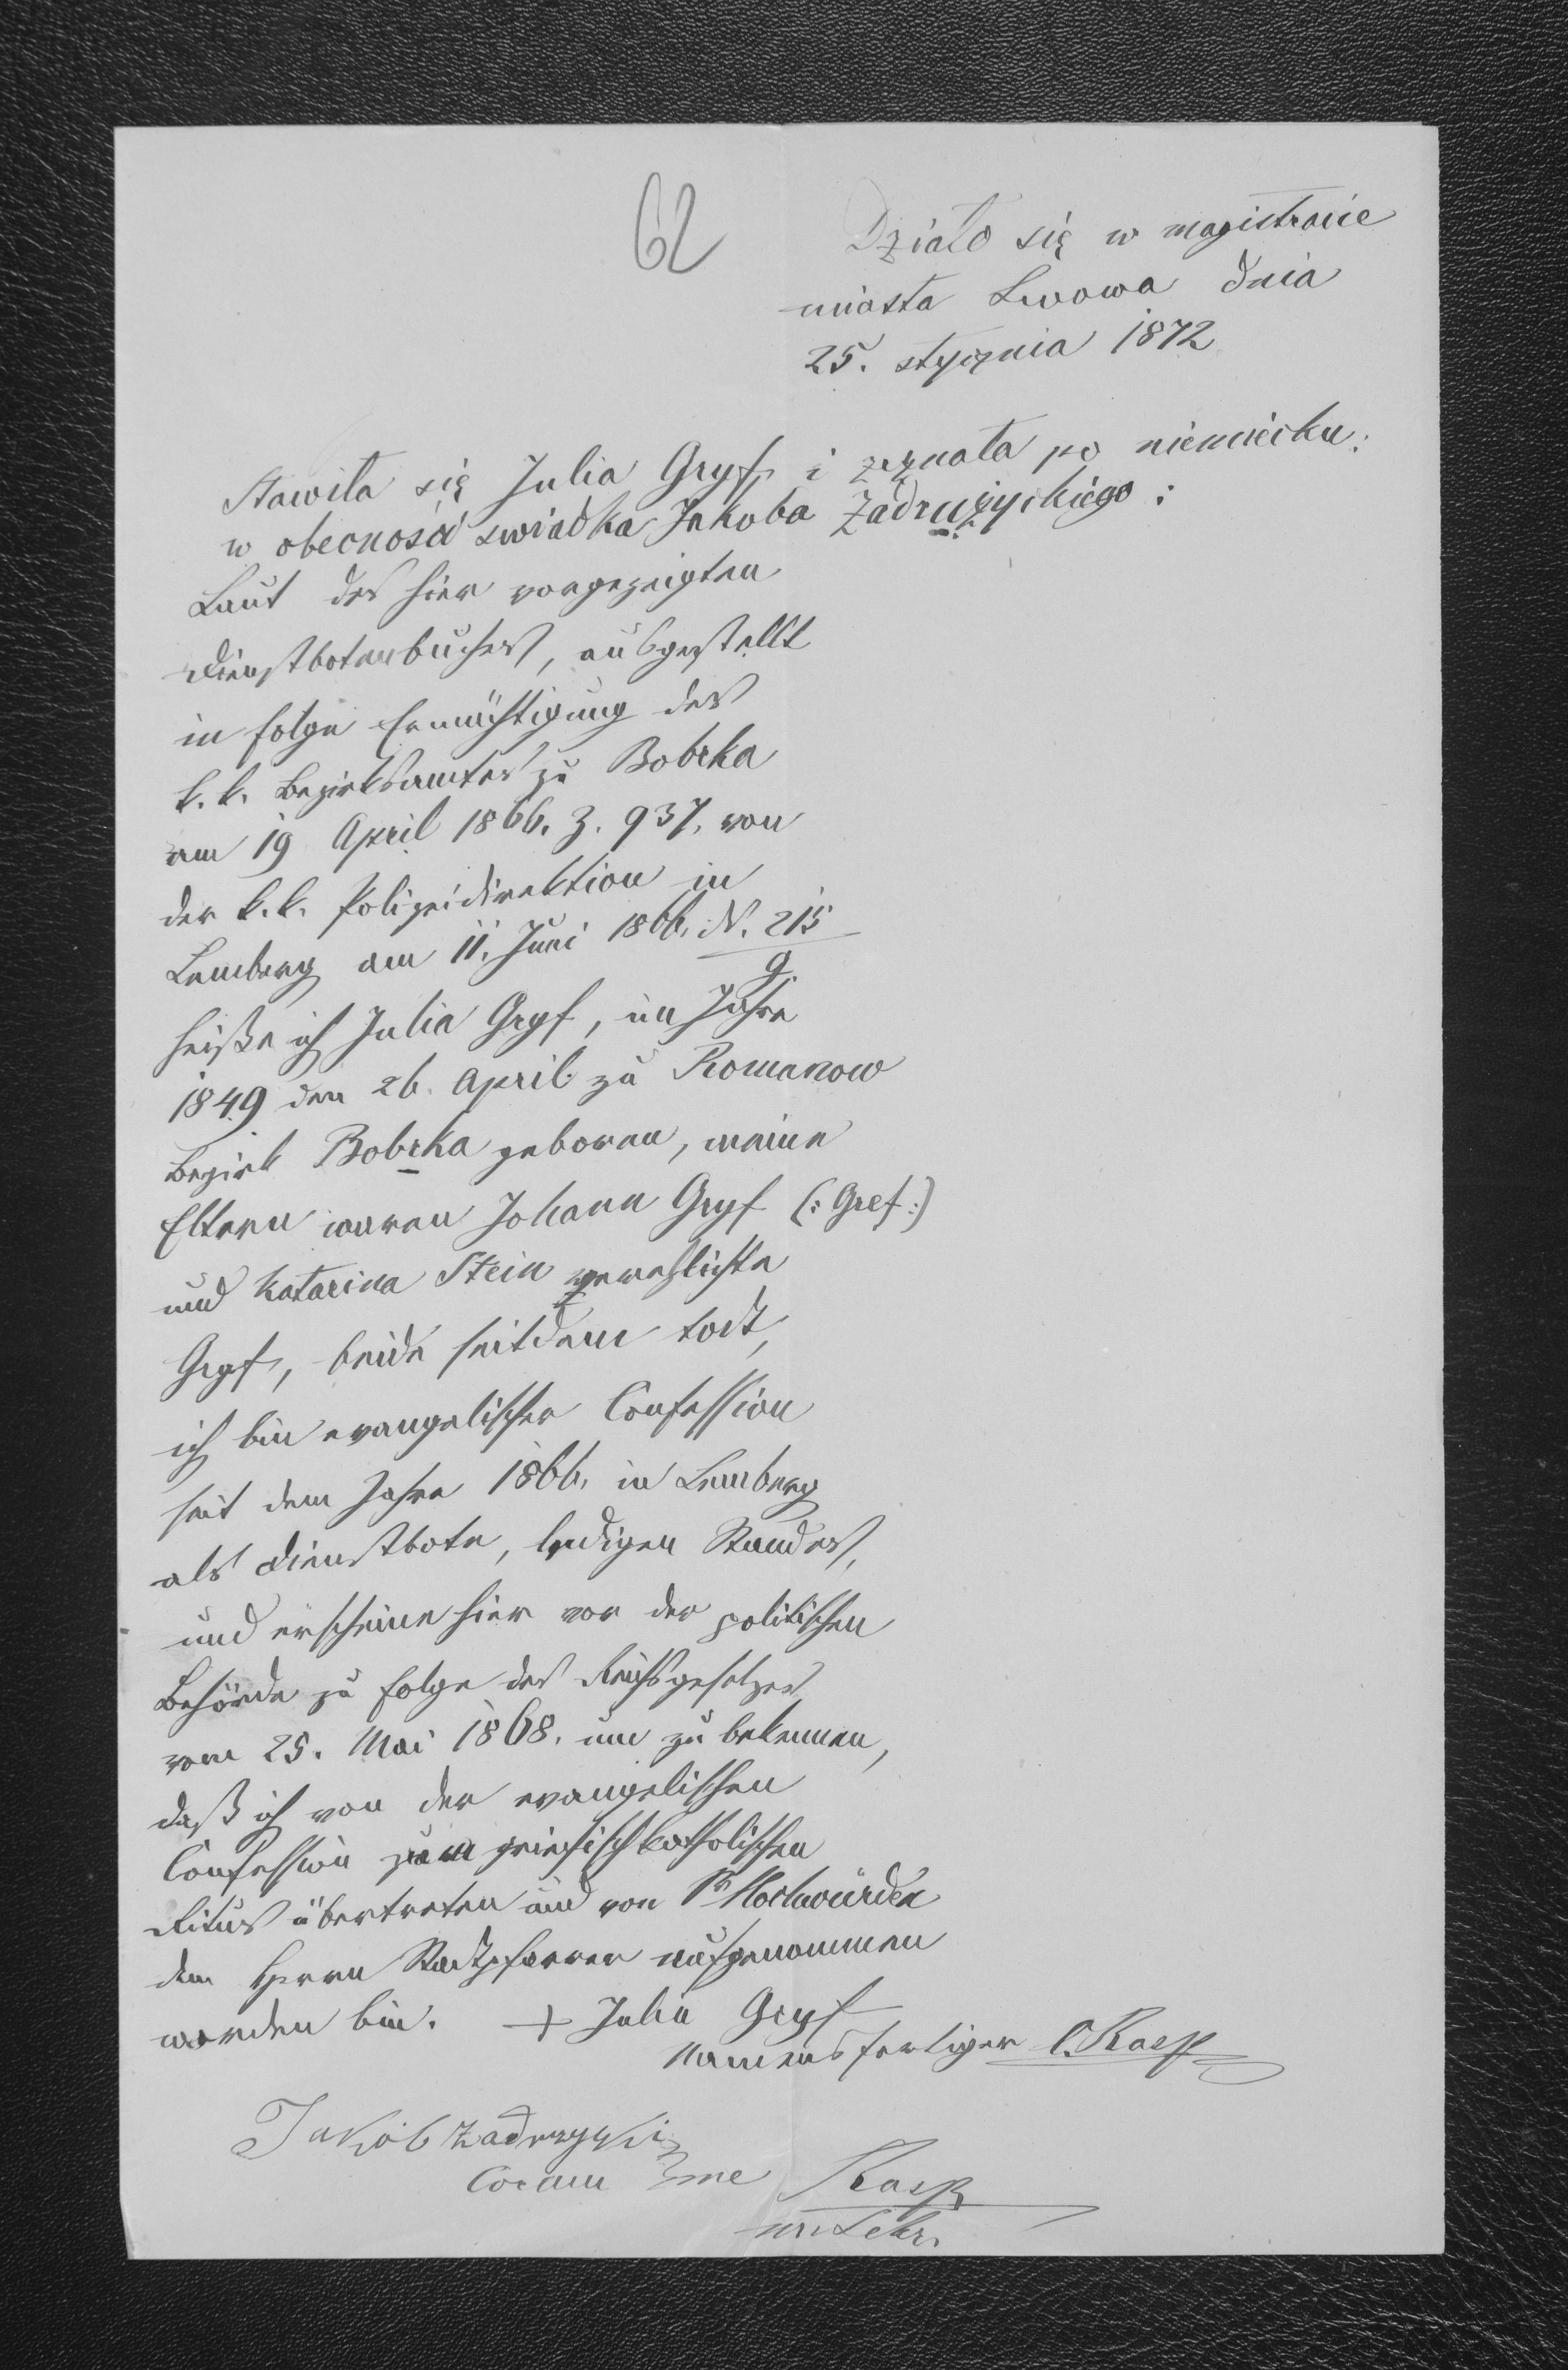 62
Działo się w magistracie
miasta Lwowa dnia
25. stycznia 1872
Stawiła się Julia Gryf, i zeznała po niemiecku:
w obecności swiadka Jakoba Zadrużyckiego:
Laut des hier vorgezeigten
Dienstbotenbuches, ausgestellt
in folge Ermächtigung des
k. k. Bezirksamtes zu Bobrka
am 19 April 1866. Z. 937. von
der k. k. Polizeidirektion in
Lemberg am 11. Juni 1866. N. 215/9
heiße ich Julia Gryf, im Jahre
1849 den 26. April zu Romanow
Bezirk Bobrka geboren, meine
Eltern waren Johann Gryf (: Gref :)
und Katarina Stein verehlichte
Gryf, beide seitdem todt,
ich bin evangelischer Confession
seit dem Jahre 1866. in Lemberg
als Dienstbote, ledigen Standes,
und erscheine hier vor der politischen
Behörde zu folge des Reichsgesetzes
vom 25. Mai 1868. um zu bekennen,
daß ich von der evangelischen
Confession zum griechischkatholischen
Ritus übertreten und von Sr Hochwürden
dem Herrn Stadtpfarrer aufgenommen
worden bin. + Julia Gryf
Namensfertiger C. Rasp
Jakób Zadrzycki
Coram me Rasp
m. Sekr.